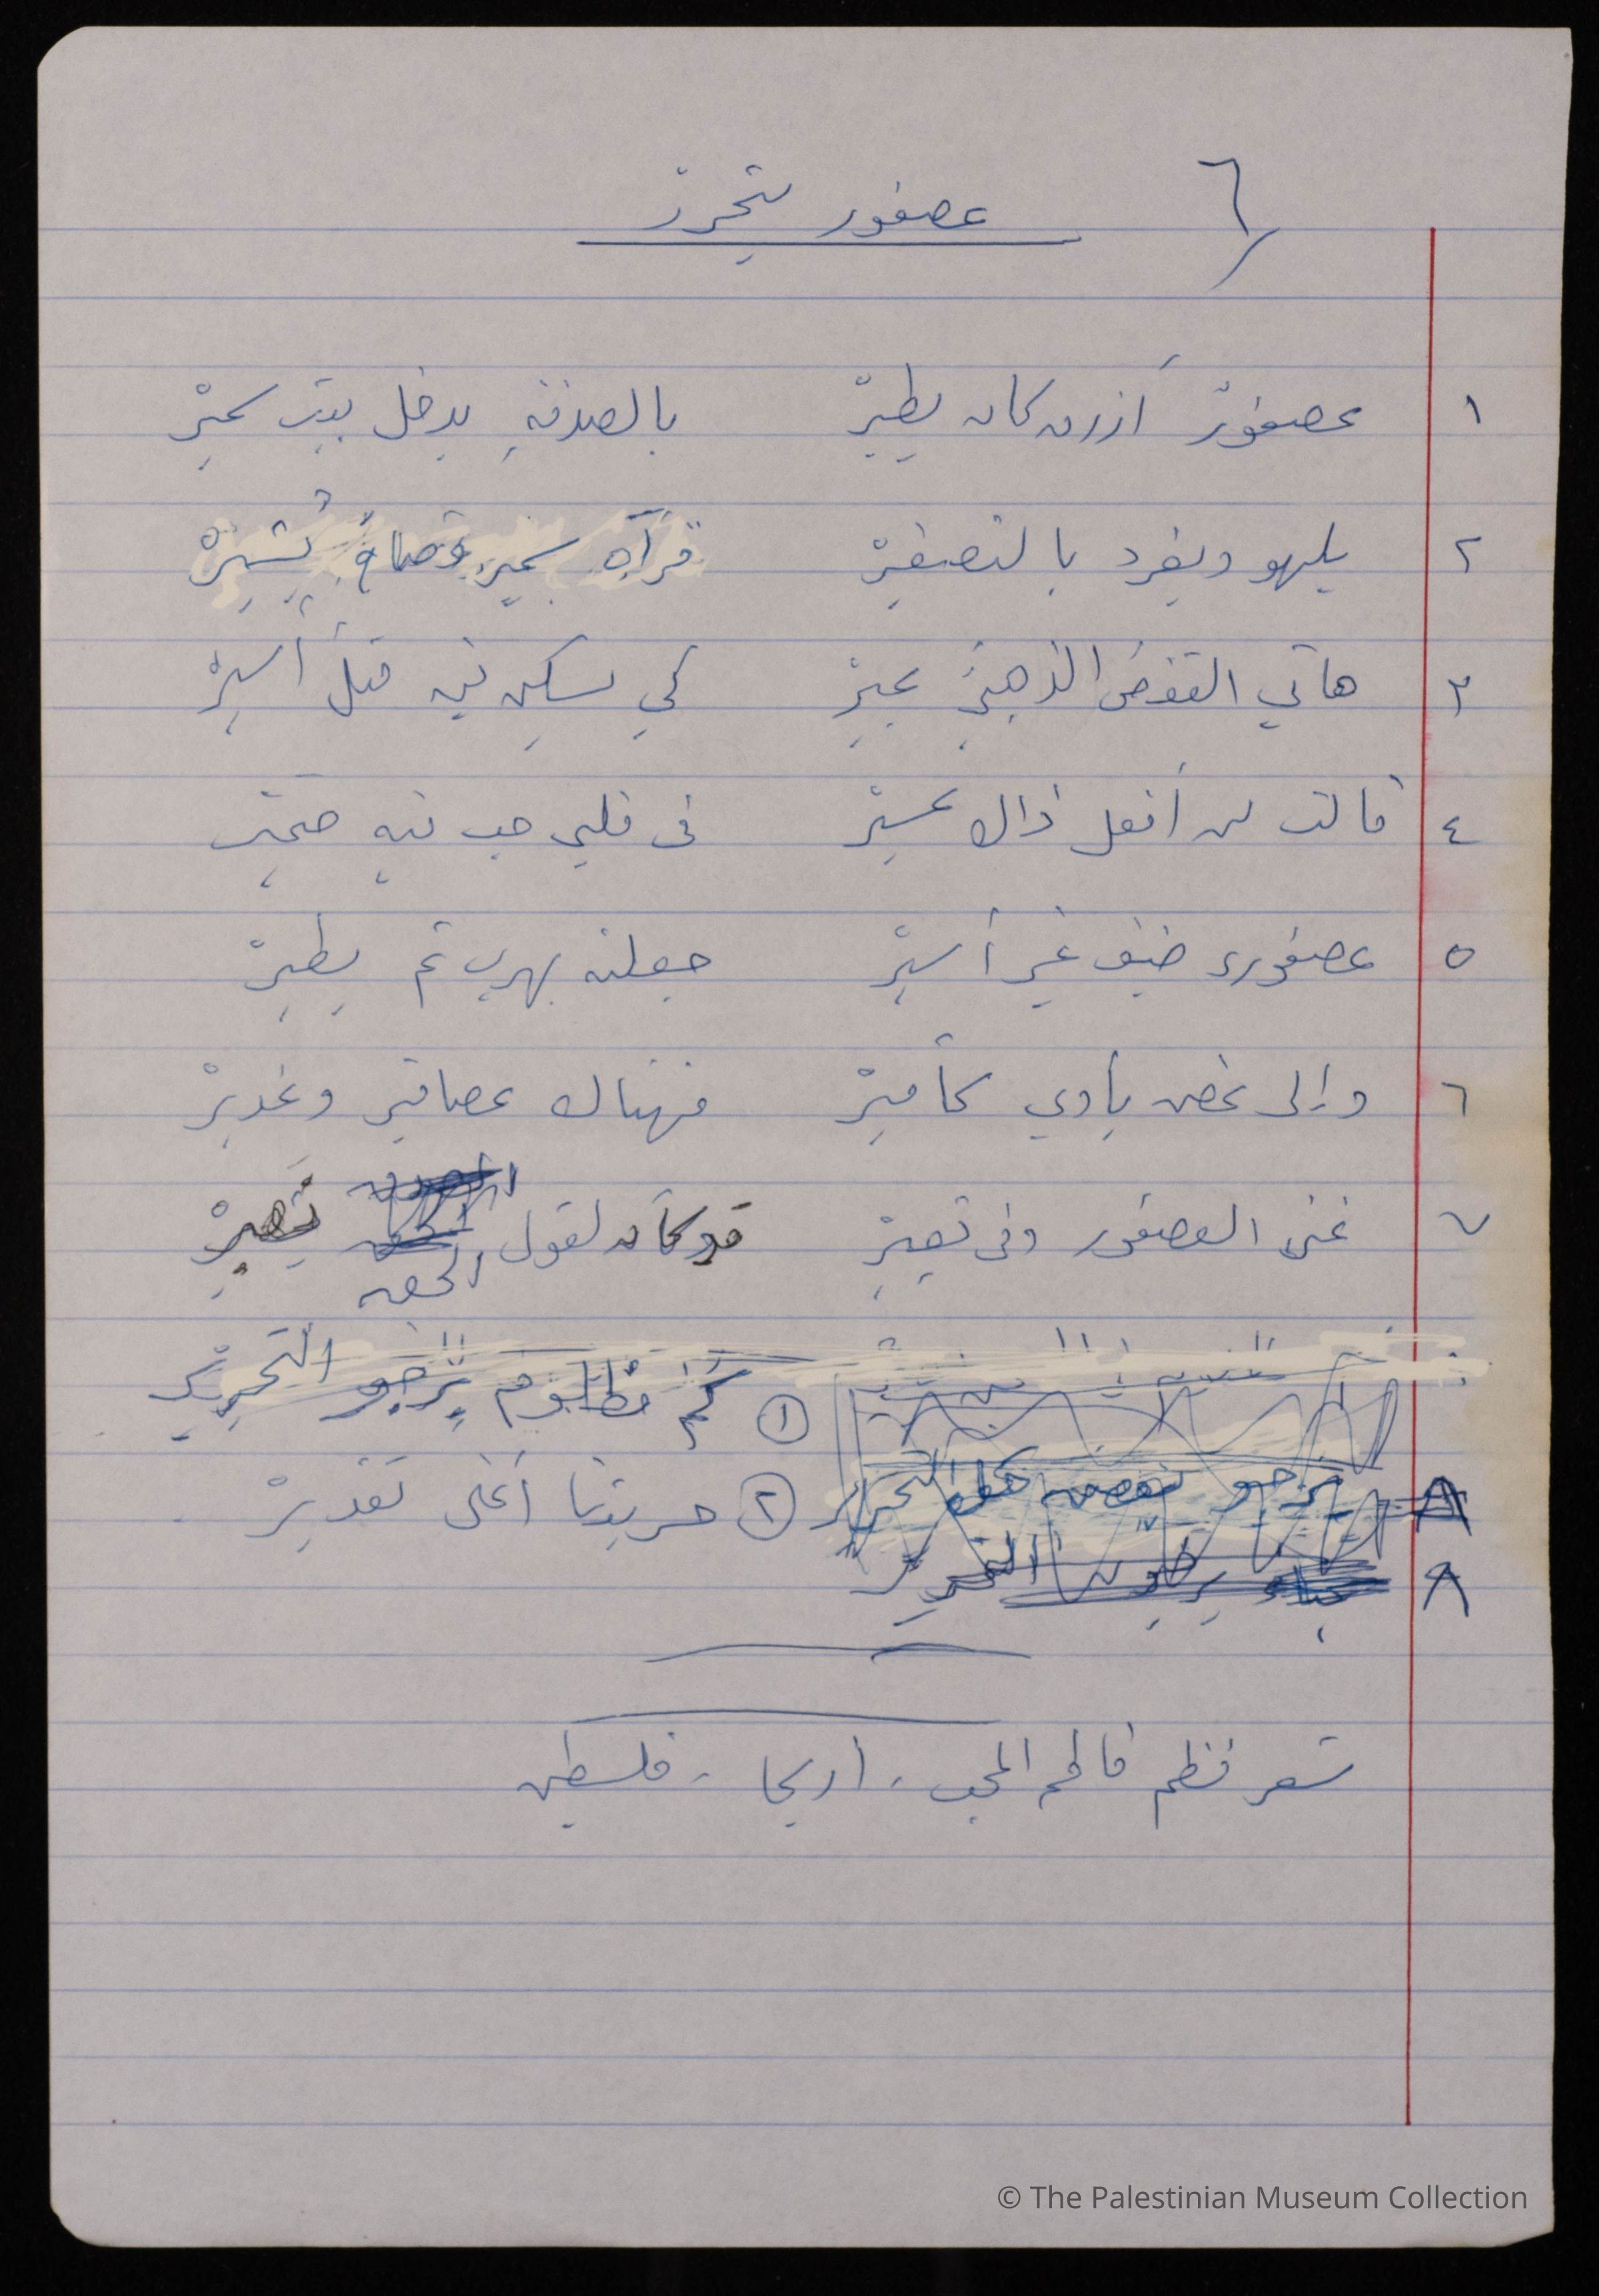 ٦ عصفور يتحرر
١ عصفورٌ أزرق كان يطيرْ بالصدفةِ يدخل بيت سميرْ
٢ يلهو ويغرد بالتصفيرْ فرآه سمير وصاحَ يُشيرْ
٣ هاتي القفصَ الذهبيَّ عبيرْ كي يسكن فيه مثل أسيرْ
٤ قالت لن أفعل ذاك عسيرْ في قلبي حب فيه ضمير
٥ عصفوري ضيف غير أسيرْ جعلته يهرب ثم يطيرْ
٦ وإلى غصن يأوي كأميرْ فهناك عصافير وغديرْ
٧ غنى العصفور وفي تعبيرْ قد كان لقول الحق نصيرْ
١ كم مظلوم يرجو التحرير
٨ يرجو التحرير ٢ حريتنا أغلى تقديرْ
٨ التحرير
شعر نظم فالح المحب - أريحا - فلسطين
© The Palestinian Museum Collection